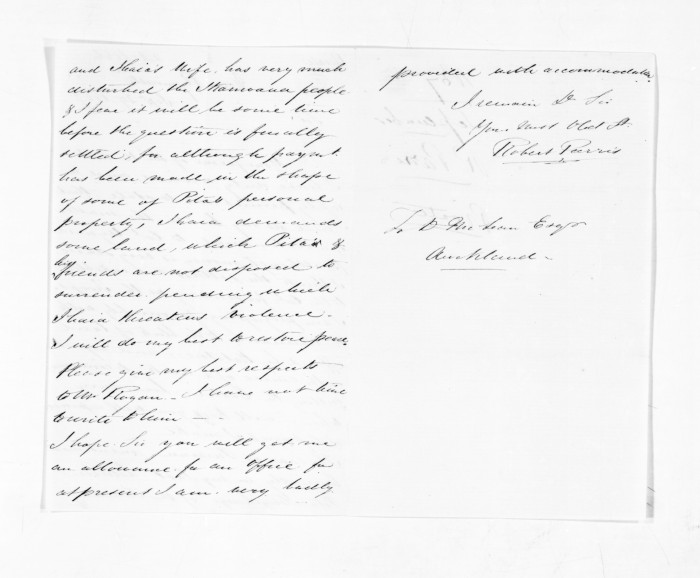 and Ihaia's Wife. has very much
disturbed the Mamoana people
& I fear it will be some time
before the question is finally
settled, for although paymt.
has been made in the shape
of some of Pita's personal
property, Ihaia demands
some land, which Pita's &
his friends are not disposed to
surrender. pending which
Ihaia threatens violence.
I will do my best to restore peace
Please give my best respects
to Mr Rogan - I have not time
to write to him —
I hope Sir you will get me
an allowance for an Office for
at present I am very badly
provided with accommodation.
I remain Dr Sir
Your most Obet St.
Robert Parris
To D McLean Esqr
Auckland -